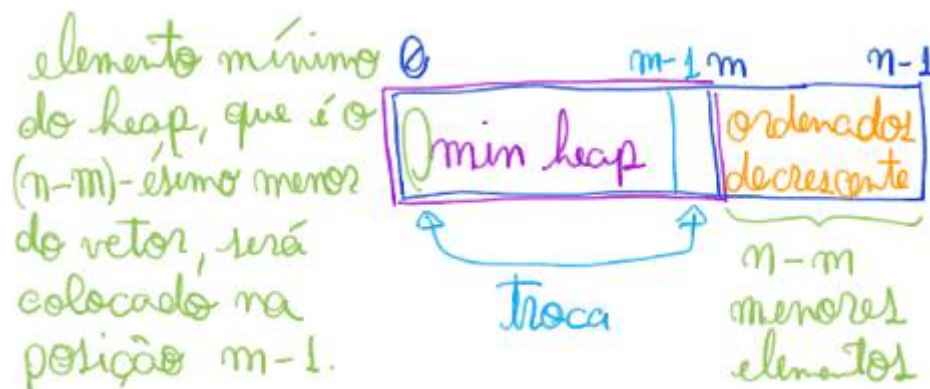 elemento mínimo
do heap, que é o
(n-m)-ésimo menor
do vetor, será
colocado na
posição m-1.
0 m-1 m n-1
min heap
ordenados
decrescente
Troca
n-m
menores
elementos